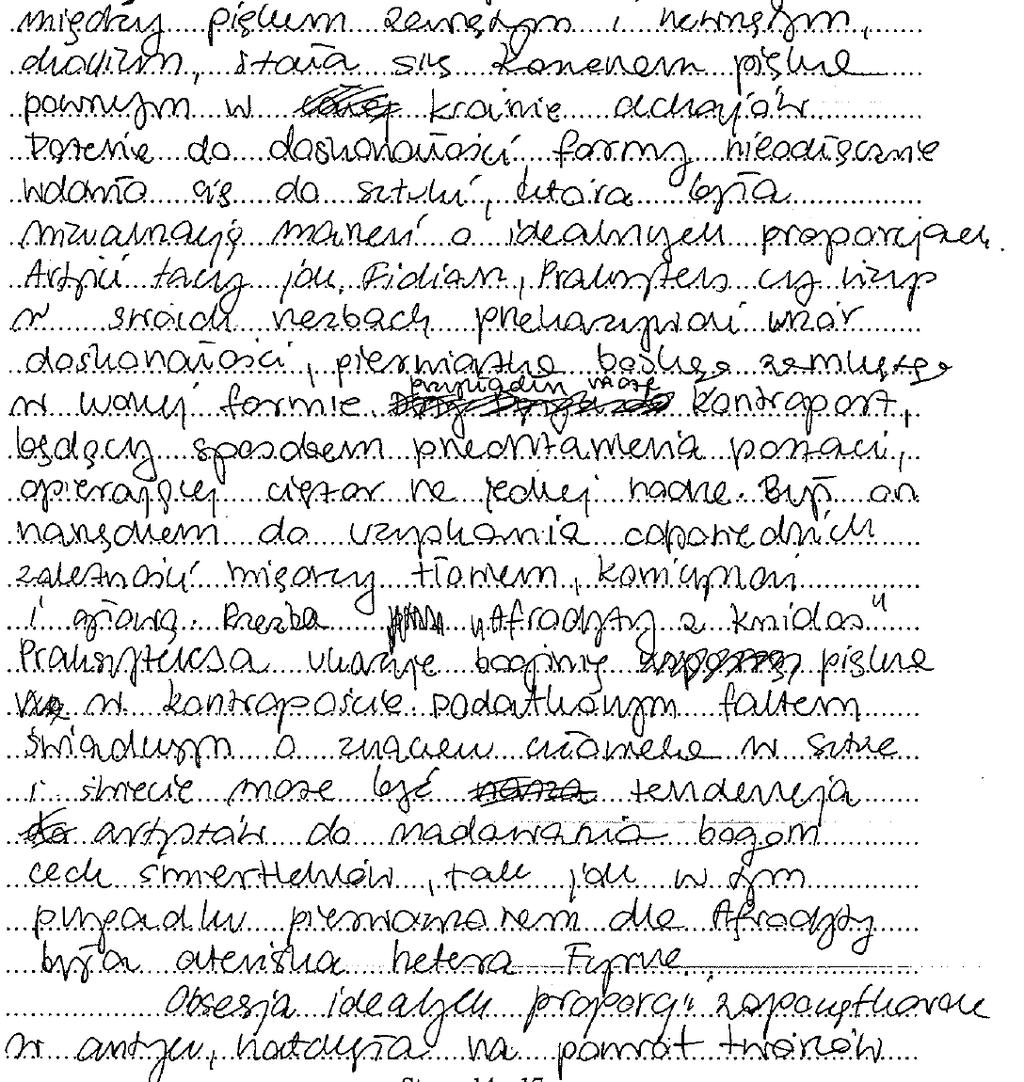 między pięknem zewnętrznym i wewnętrznym,
stała się kanonem piękna
pewnym w krainie achajów
Dążenie do doskonałości formy nieodłącznie
wdarło się do sztuki, która była
wizualizacją marzeń o idealnych proporcjach.
Artyści tacy jak, Fidiasz, Praksyteles czy Lizyp
w swoich rzeźbach przekazywali wzór
doskonałości, pierwiastka boskiego zamkniętego
w formie przykładem może kontrapost,
będący sposobem przedstawienia postaci,
opierającej ciężar na jednej nodze. Był on
narzędziem do uzyskania odpowiednich
zależności między tłowiem, kończynami
i głową. Rzeźba "Afrodyty z Knidos"
Praksytelesa ukazuje boginię piękna
w kontrapoście. Dodatkowym faktem
świadczym o znaczeniu człowieka w sztuce
i świecie może być tendencja
artystów do nadawania bogom
cech śmiertelników, tak jak w tym
przypadku pierwowzorem dla Afrodyty
była ateńska hetera Fryne.
Obsesja idealnych proporcji zapoczątkowana
w antyku, natchnęła na powrót twórców